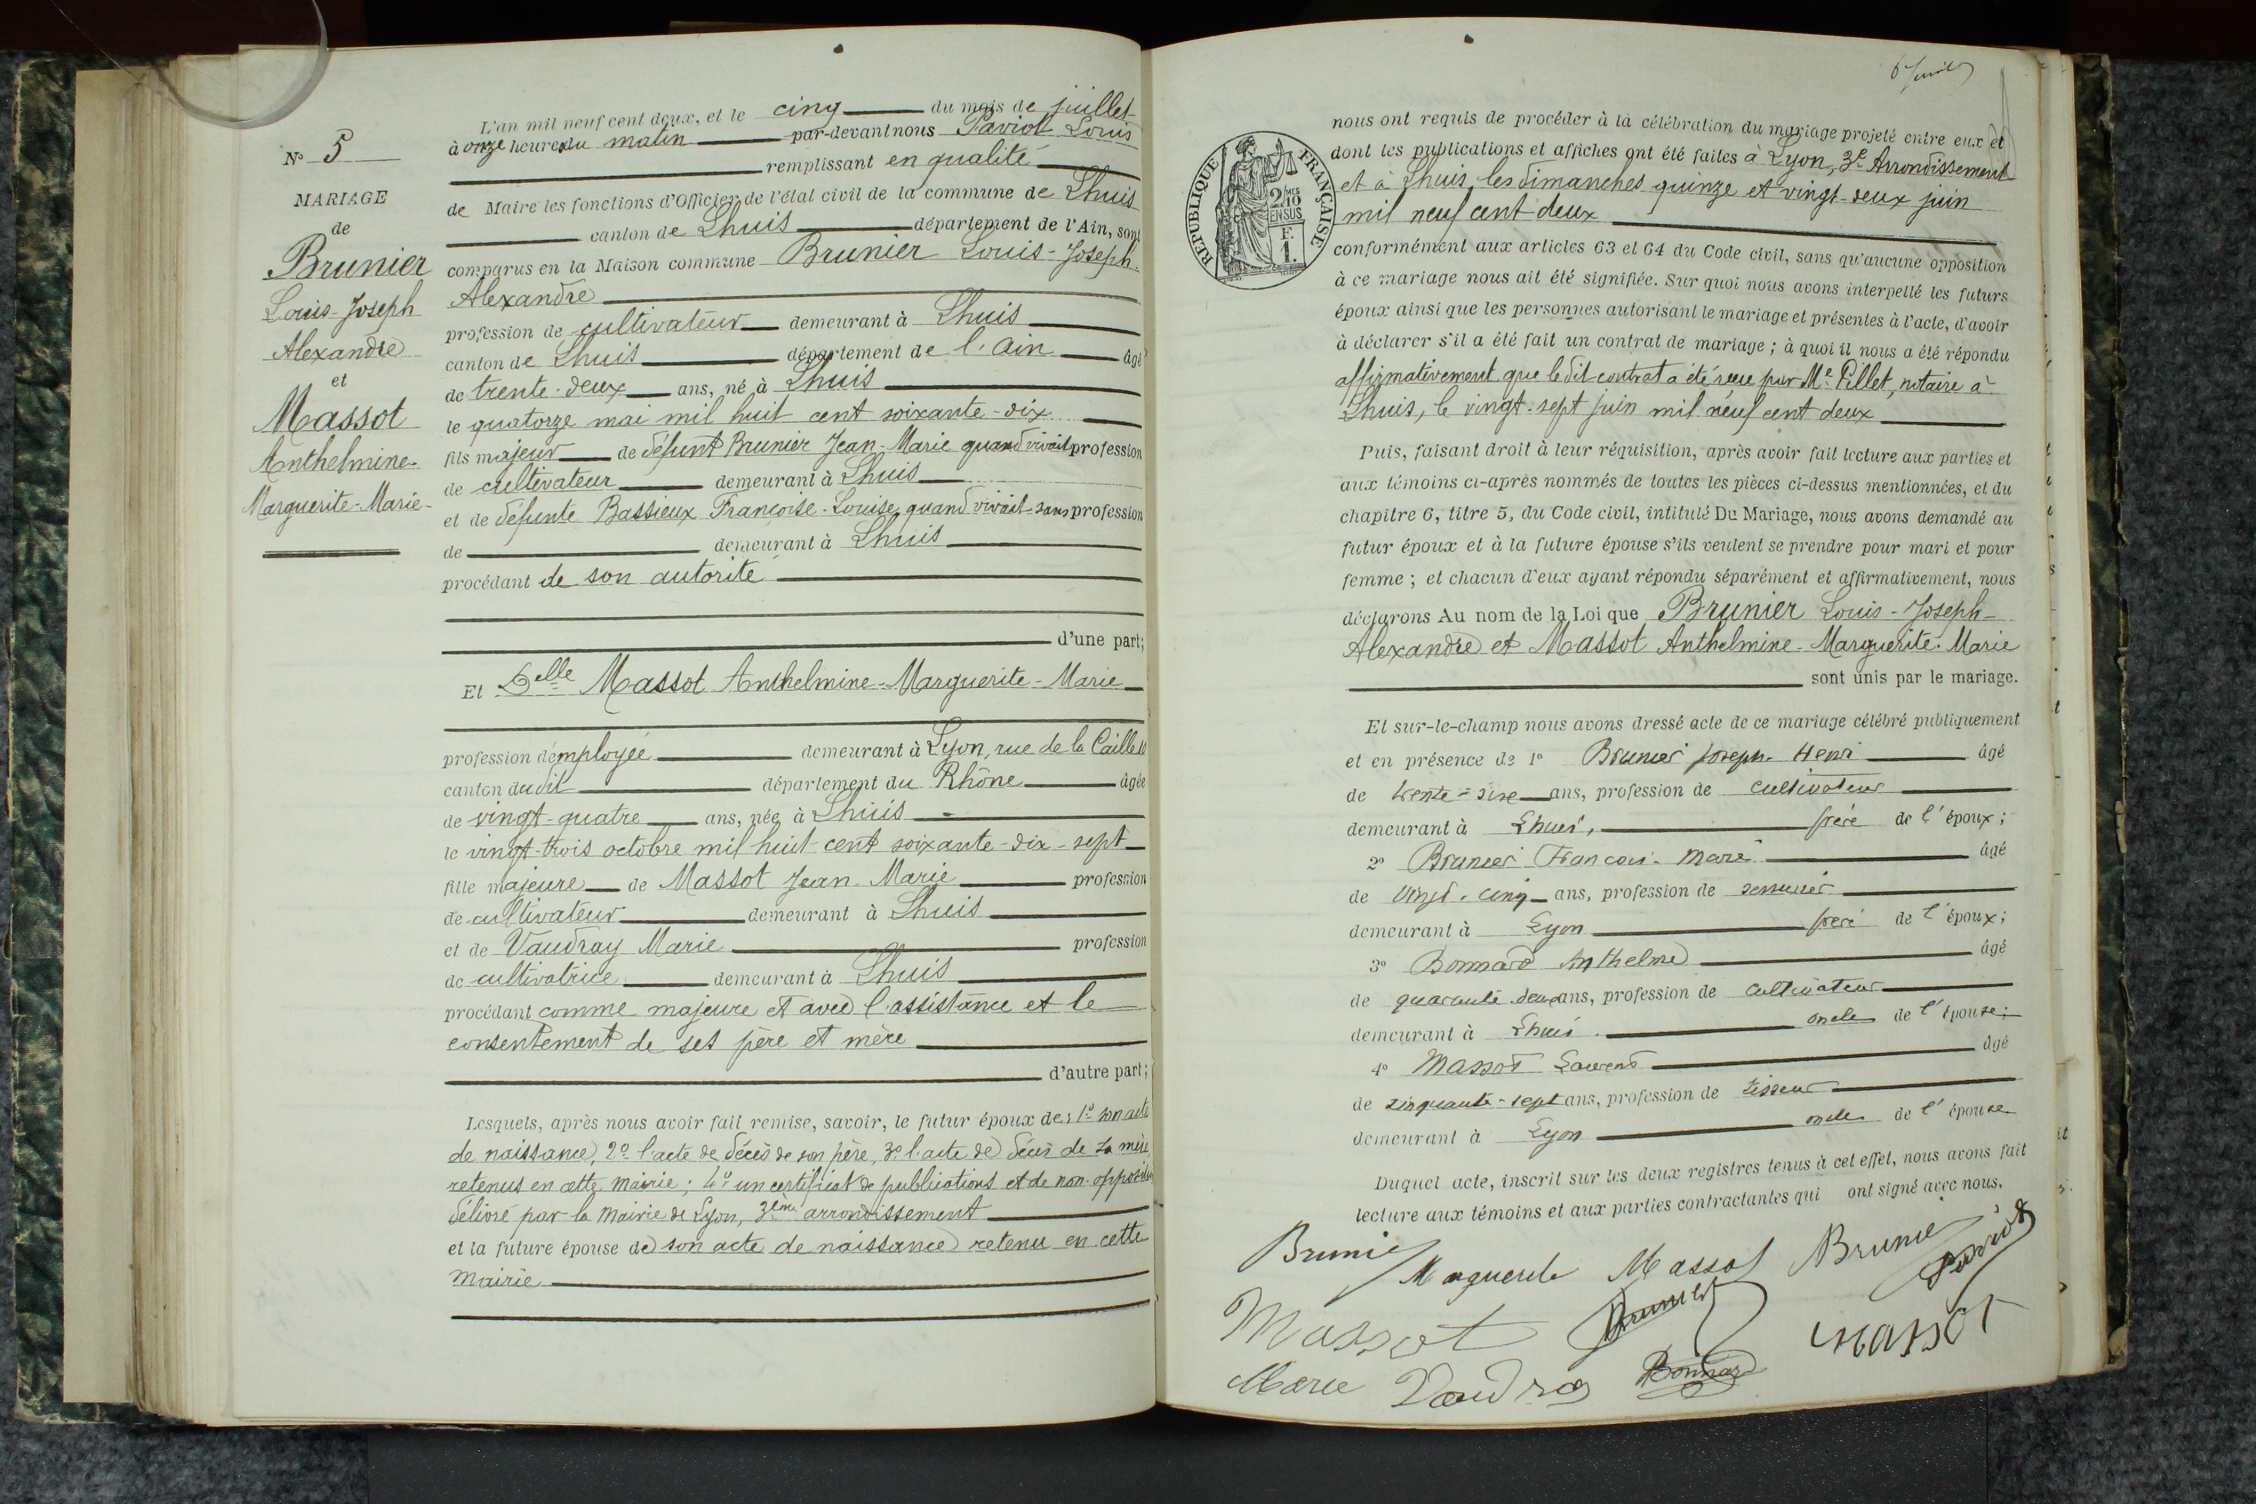 N° 5
MARIAGE
de
Brunier
Louis-Joseph
Alexandre
et
Massot
Anthelmine-
Marguerite-Marie-
L'an mil neuf cent deux, et le cinq du mois de juillet
à onze heures du matin par-devant nous Paviot Louis
remplissant en qualité
de Maire les fonctions d'Officier de l'état civil de la commune de Lhuis
canton de Lhuis département de l'Ain, sont
comparus en la Maison commune Brunier Louis-Joseph-
Alexandre
profession de cultivateur demeurant à Lhuis
canton de Lhuis département de l'Ain âgé
de trente-deux ans, né à Lhuis
le quatorze mai mil huit cent soixante-dix
fils majeur de défunt Brunier Jean-Marie quand vivait profession
de cultivateur demeurant à Lhuis
et de défunte Bassieux Françoise-Louise, quand vivait sans profession
de demeurant à Lhuis
procédant de son autorité
d'une part;
Et Delle Massot Anthelmine-Marguerite-Marie
profession d'employée demeurant à Lyon, rue de la Caille
canton dudit département du Rhône âgée
de vingt-quatre ans, née à Lhuis
le vingt-trois octobre mil huit cent soixante-dix-sept
fille majeure de Massot Jean-Marie profession
de cultivateur demeurant à Lhuis
et de Vaudray Marie profession
de cultivatrice demeurant à Lhuis
procédant comme majeure et avec l'assistance et le
consentement de ses père et mère
d'autre part;
Lesquels, après nous avoir fait remise, savoir, le futur époux de: 1° son acte
de naissance, 2° l'acte de décès de son père, 3° l'acte de décès de sa mère
retenus en cette mairie; 4° un certificat de publications et de non-opposition
délivré par la Mairie de Lyon, 3ème arrondissement
et la future épouse de son acte de naissance retenu en cette
mairie
RÉPUBLIQUE FRANÇAISE
2/10
EN SUS
F.
1.
nous ont requis de procéder à la célébration du mariage projeté entre eux et
dont les publications et affiches ont été faites à Lyon, 3e Arrondissement
et à Lhuis, les dimanches quinze et vingt-deux juin
mil neuf cent deux
conformément aux articles 63 et 64 du Code civil, sans qu'aucune opposition
à ce mariage nous ait été signifiée. Sur quoi nous avons interpellé les futurs
époux ainsi que les personnes autorisant le mariage et présentes à l'acte, d'avoir
à déclarer s'il a été fait un contrat de mariage; à quoi il nous a été répondu
affirmativement que ledit contrat a été reçu par Me Pillet, notaire à
Lhuis, le vingt-sept juin mil neuf cent deux
Puis, faisant droit à leur réquisition, après avoir fait lecture aux parties et
aux témoins ci-après nommés de toutes les pièces ci-dessus mentionnées, et du
chapitre 6, titre 5, du Code civil, intitulé Du Mariage, nous avons demandé au
futur époux et à la future épouse s'ils veulent se prendre pour mari et pour
femme; et chacun d'eux ayant répondu séparément et affirmativement, nous
déclarons Au nom de la Loi que Brunier Louis-Joseph-
Alexandre et Massot Anthelmine-Marguerite-Marie
sont unis par le mariage.
Et sur-le-champ nous avons dressé acte de ce mariage célébré publiquement
et en présence de 1° Brunier Joseph-Henri âgé
de trente-six ans, profession de cultivateur
demeurant à Lhuis, frère de l'époux;
2° Brunier François-Marie âgé
de vingt-cinq ans, profession de serrurier
demeurant à Lyon frère de l'époux;
3° Bonnard Anthelme âgé
de quarante-deux ans, profession de cultivateur
demeurant à Lhuis. oncle de l'épouse;
4° Massot Laurent âgé
de cinquante-sept ans, profession de tisseur
demeurant à Lyon oncle de l'épouse
Duquel acte, inscrit sur les deux registres tenus à cet effet, nous avons fait
lecture aux témoins et aux parties contractantes qui ont signé avec nous.
Brunier Marguerite Massot Brunier Paviot
Massot Brunier Massot
Marie Vaudray Bonnard